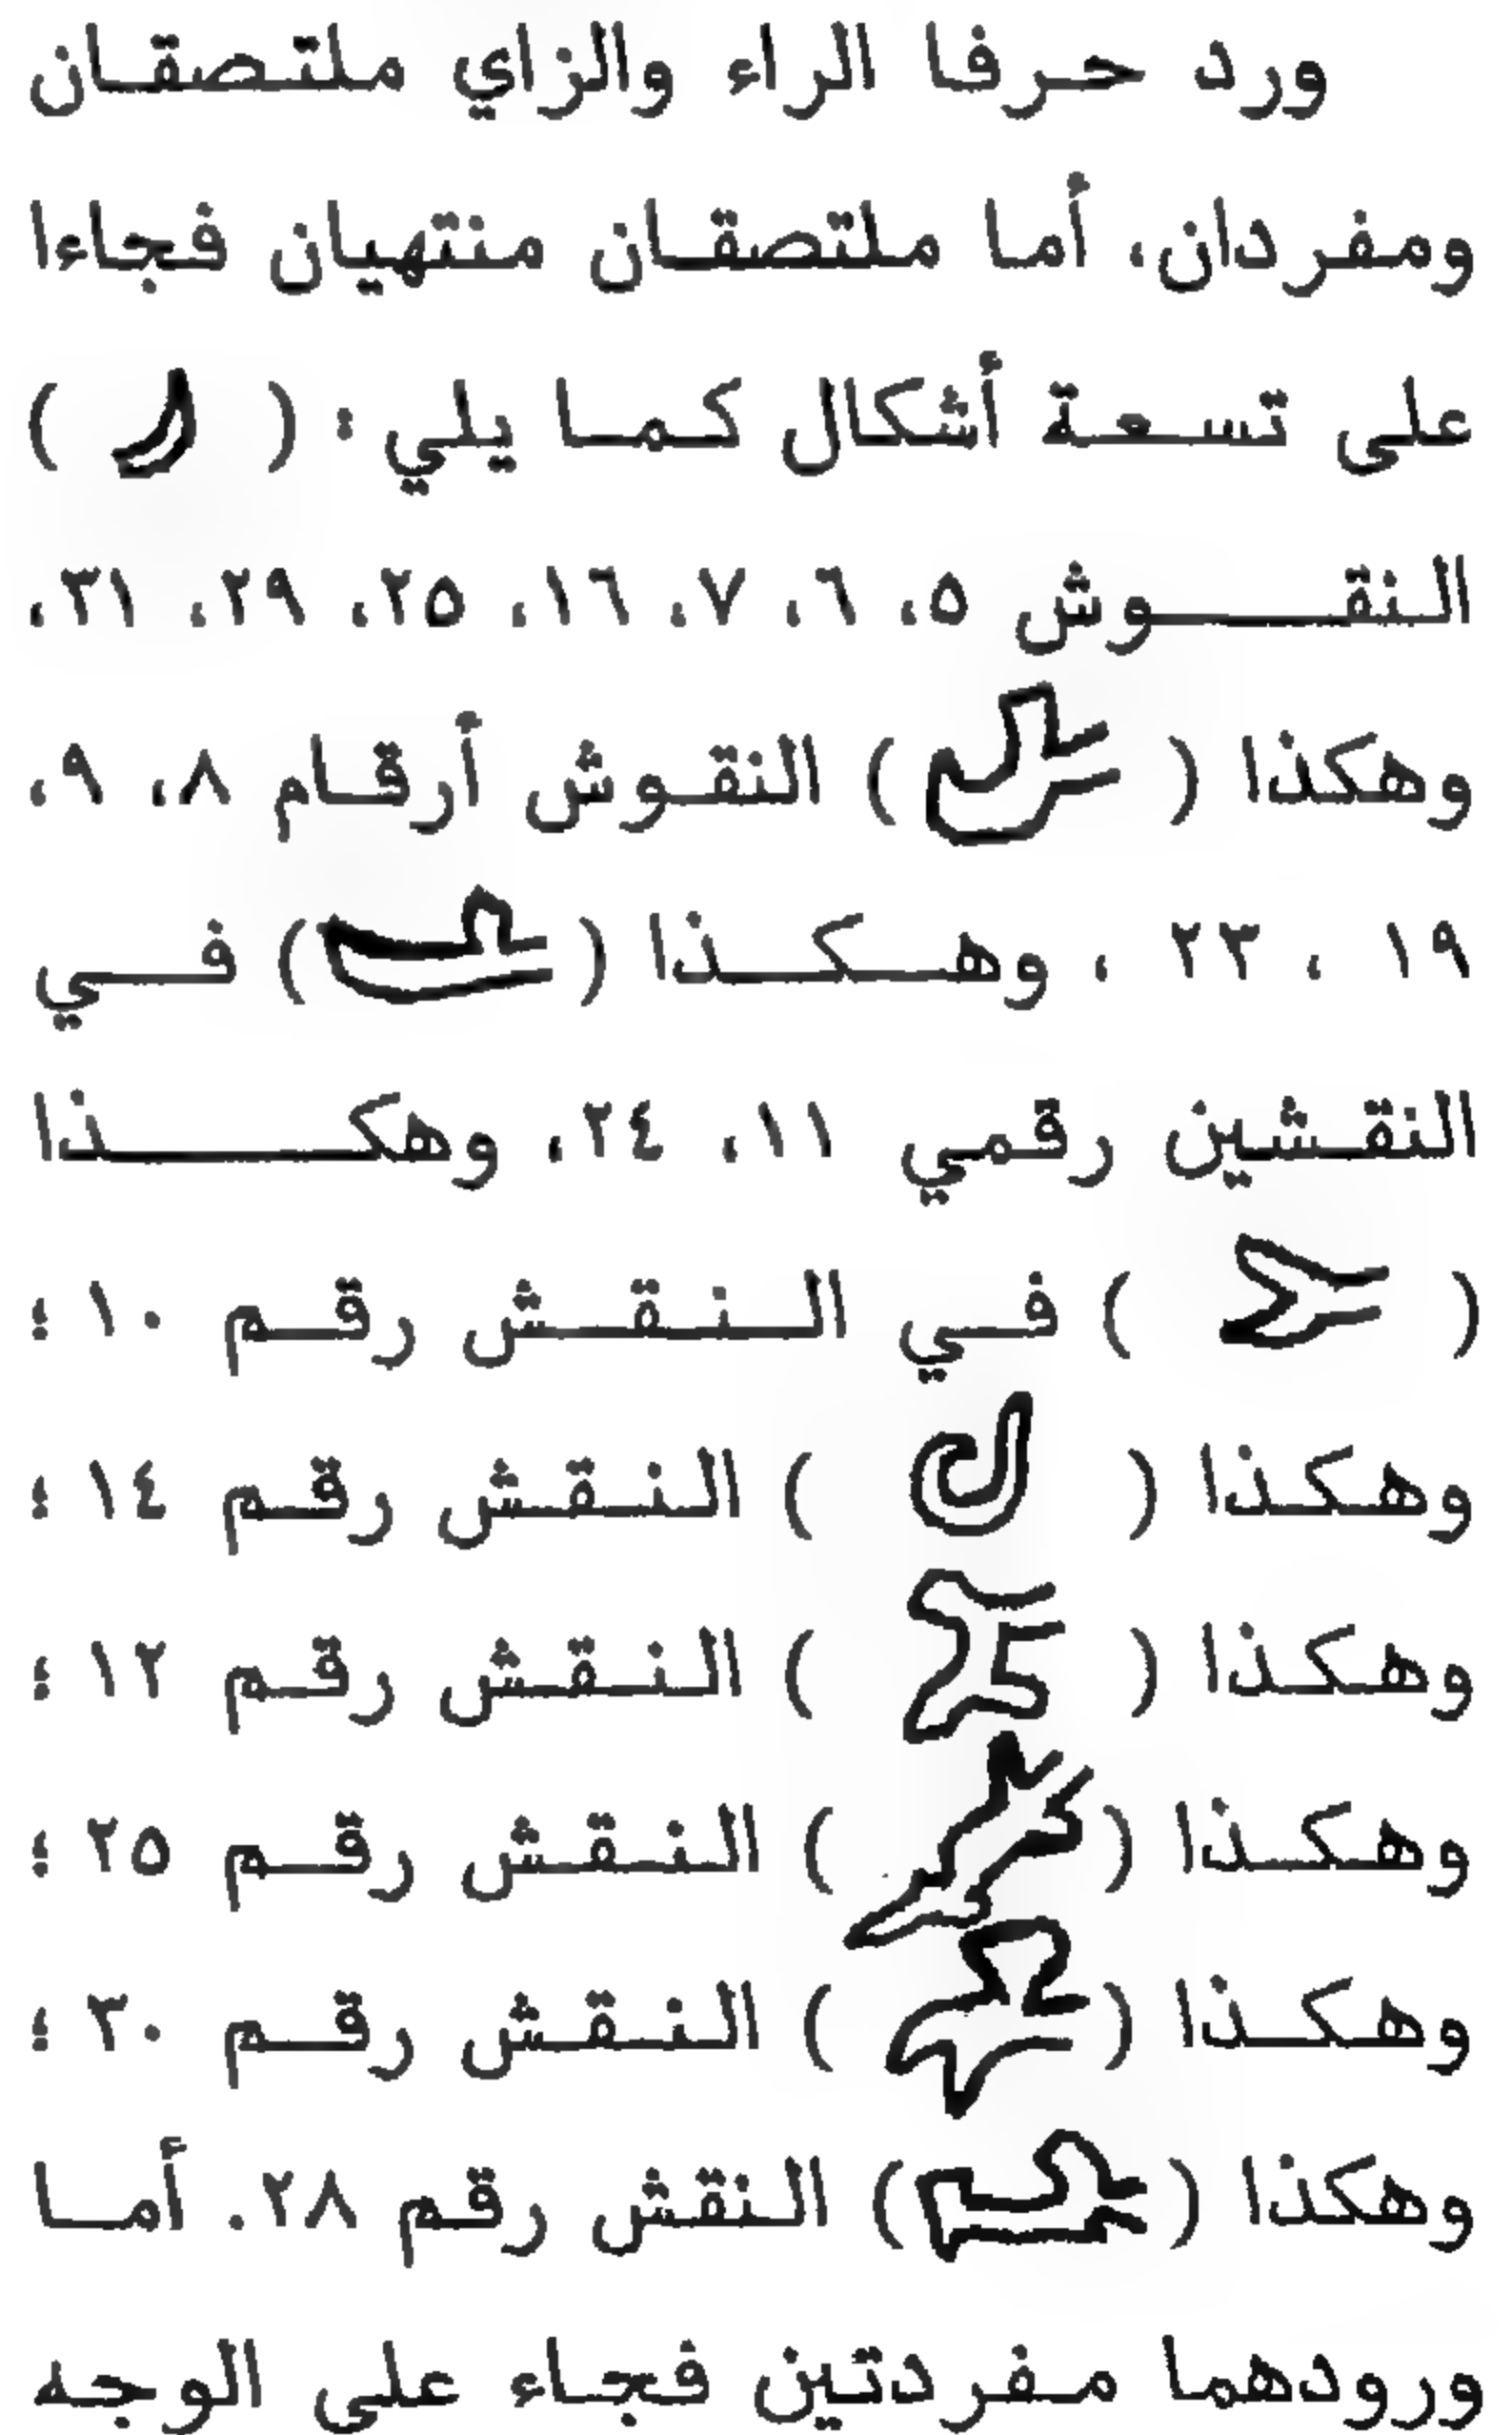 ورد حرفا الراء والزاي ملتصقان
ومفردان، أما ملتصقان منتهيان فجاءا
على تسعة أشكال كما يلي: ( )
النقوش ٥، ٦، ٧، ١٦، ٢٥، ٢٩، ٣١،
وهكذا ( ) النقوش أرقام ٨، ٩،
١٩ ، ٢٣ ، وهكذا ( ) في
النقشين رقمي ١١، ٢٤، وهكذا
( ) في النقش رقم ١٠ ؛
وهكذا ( ) النقش رقم ١٤ ؛
وهكذا ( ) النقش رقم ١٢ ؛
وهكذا ( ) النقش رقم ٢٥ ؛
وهكذا ( ) النقش رقم ٣٠ ؛
وهكذا ( ) النقش رقم ٢٨. أما
ورودهما مفردتين فجاء على الوجه